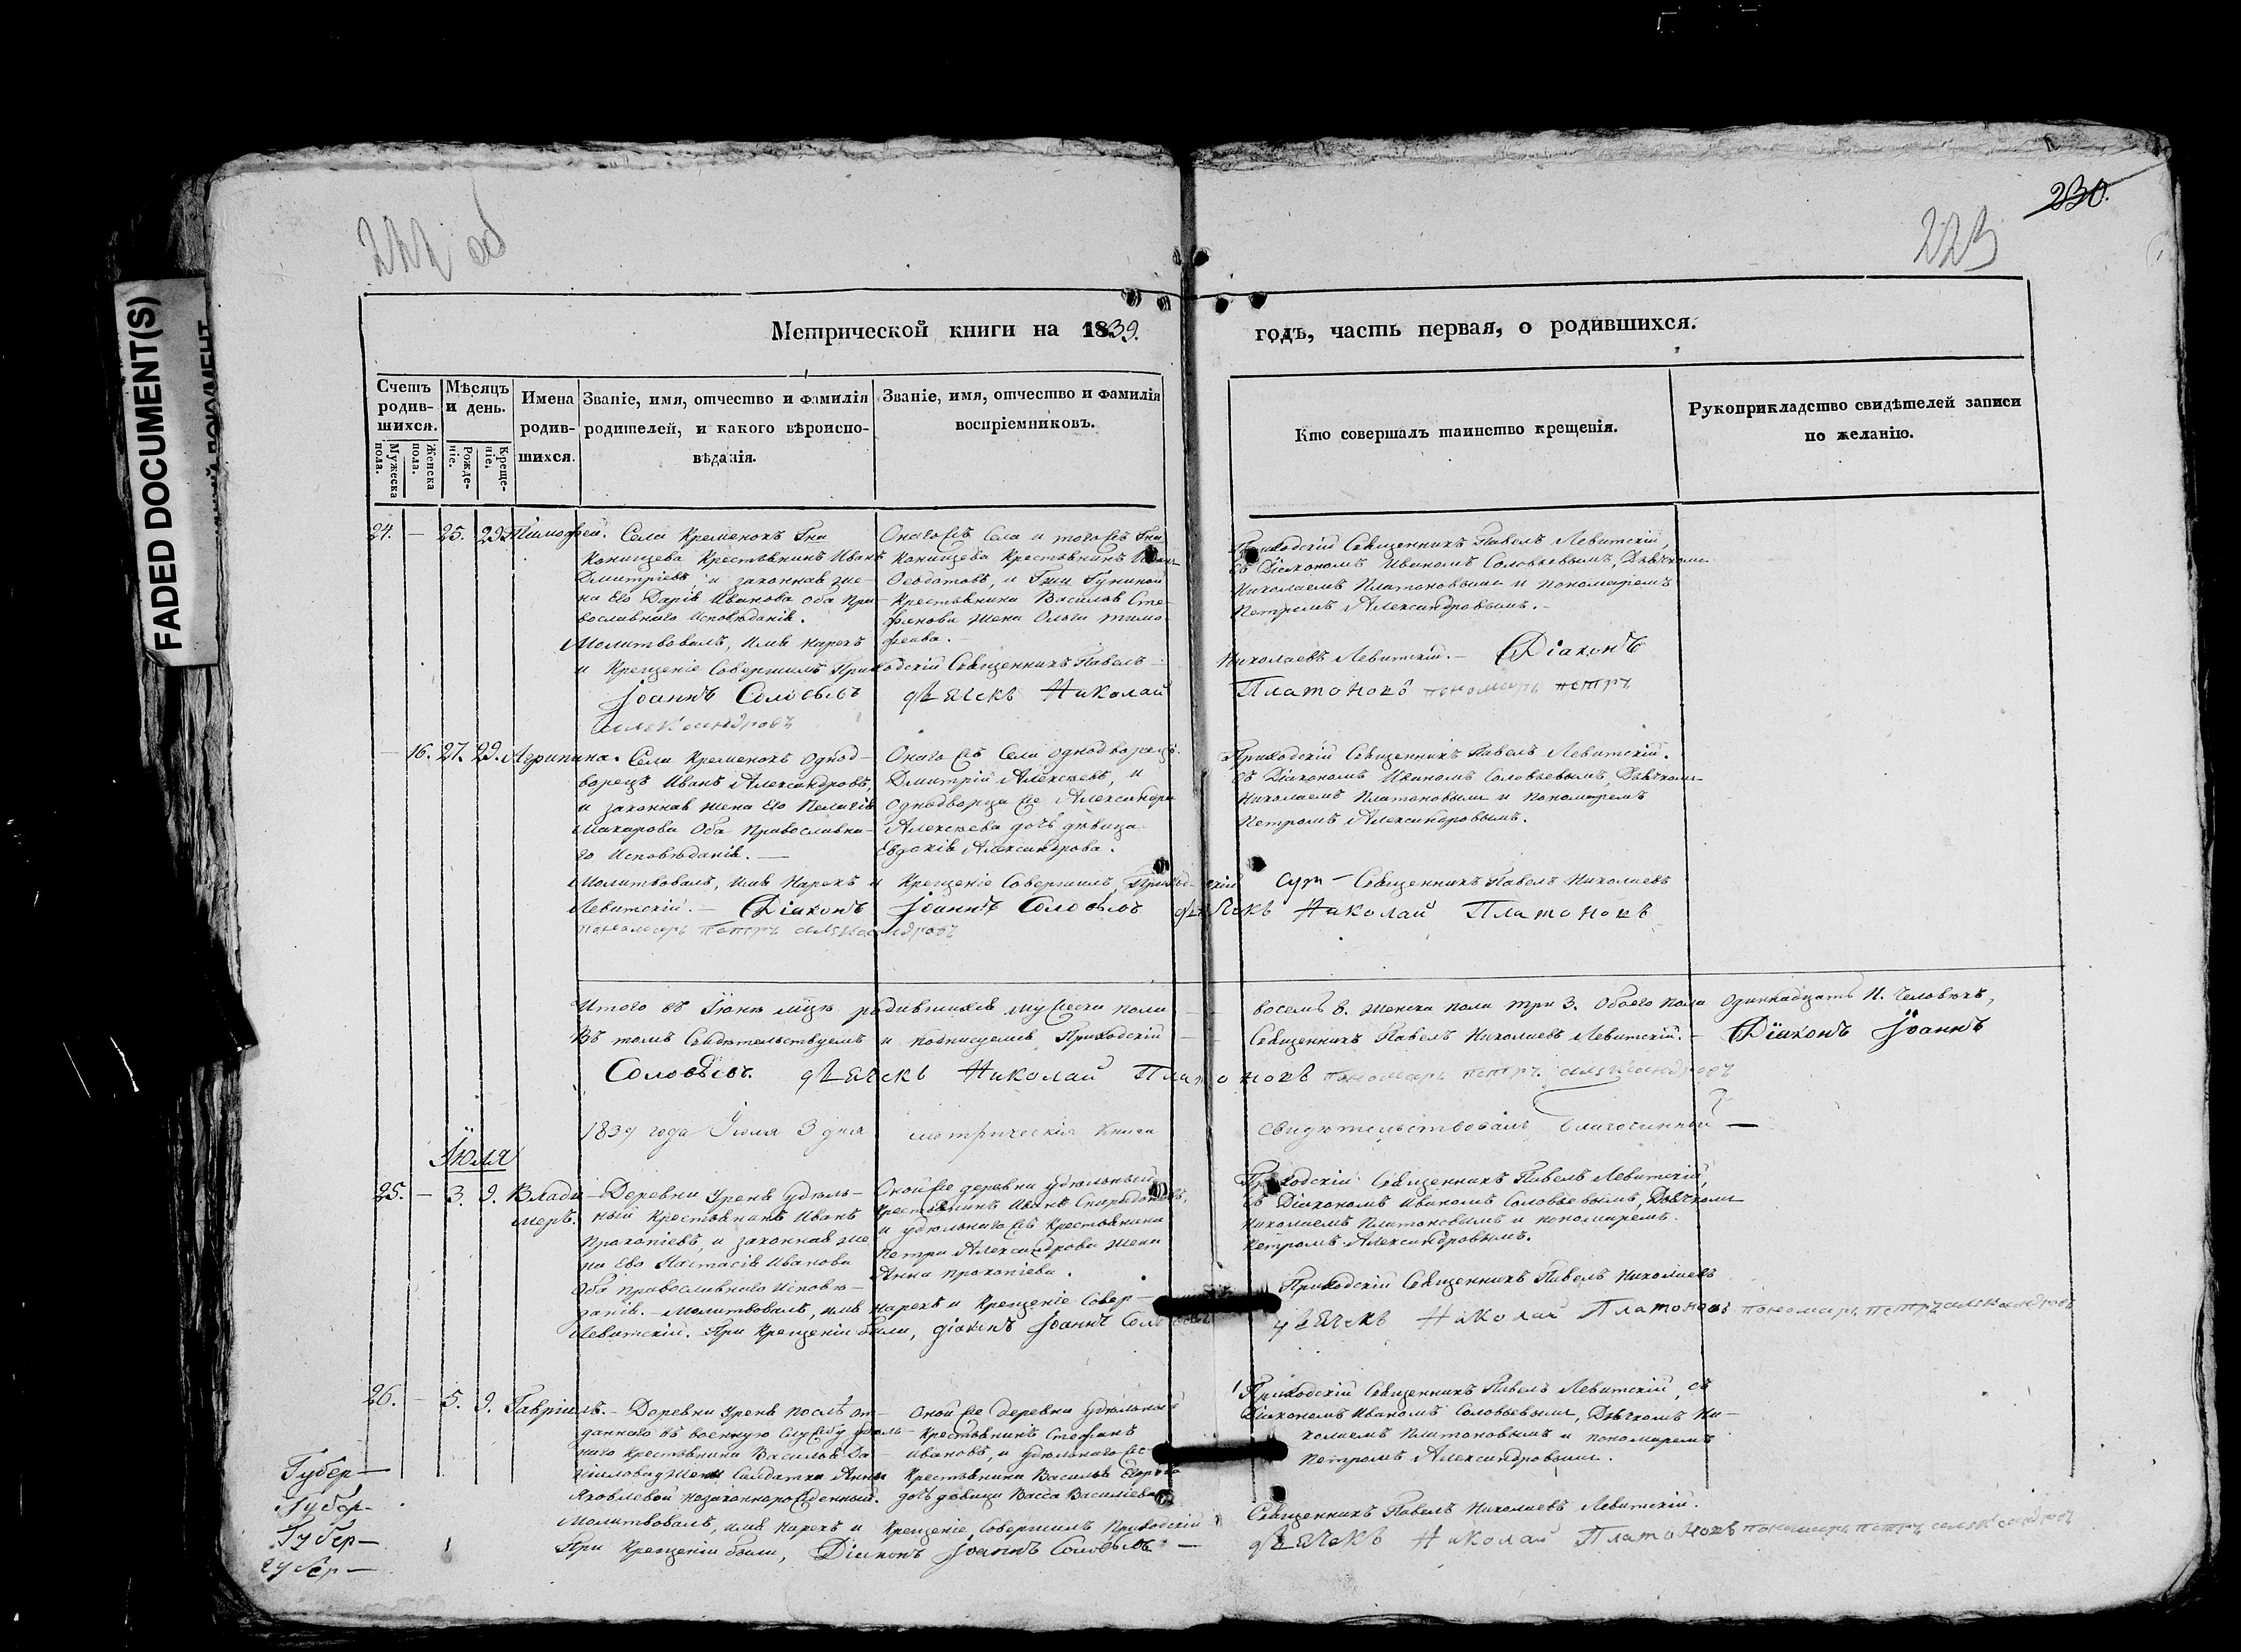 230.
222 об
223
FADED DOCUMENT(S)
Метрической книги на 1839.
годъ, часть первая, о родившихся.
Счетъ родив-шихся.
Мужеска пола.
Женска пола.
Мѣсяцъ и день.
Рожде-ніе.
Креще-ніе.
Имена родив-шихся.
Званіе, имя, отчество и фамилія
родителей, и какого вѣроиспо-
вѣданія.
Званіе, имя, отчество и фамилія
воспріемниковъ.
Кто совершалъ таинство крещенія.
Рукоприкладство свидѣтелей записи
по желанію.
24. — 25. 29. Тимофей.
Села Кременокъ Гна
Канищева Крестьянинъ Иванъ
Дмитріевъ и законная же-
на Его Дарія Иванова Оба пра-
вославнаго Исповѣданія.
Онагожъ Села и тогожъ Гна
Канищева Крестьянинъ
Ѳеодотовъ, и Гжи
Крестьянина Василья Сте-
фанова жена Ольга Тимо-
феева.
Приходскій Священникъ Павелъ Левитскій,
съ Діакономъ Иваномъ Соловьевымъ, Дьячкомъ
Николаемъ Платоновымъ и пономаремъ
Петромъ Александровымъ.
Молитвовалъ, имя нарекъ
и Крещеніе Совершилъ Приходскій Священникъ Павелъ
Николаевъ Левитскій. — Діаконъ
Іоаннъ Соловьевъ дьячекъ Николай Платоновъ пономарь петръ
александровъ
— 16. 27. 29. Агрипина.
Села Кременокъ Однод-
ворецъ Иванъ Александровъ,
и законная жена Его Пелагія
Макарова Оба Православна-
го Исповѣданія. —
Онаго жъ Села однодворецъ
Дмитрій Алексѣевъ, и
Однодворца же Александра
Алексѣева дочь дѣвица
Евдокія Александрова.
Приходскій Священникъ Павелъ Левитскій.
съ Діакономъ Иваномъ Соловьевымъ, Дьячкомъ
Николаемъ Платоновымъ и пономаремъ
Петромъ Александровымъ.
Молитвовалъ, имя Нарекъ и Крещеніе Совершилъ, Приходскій Священникъ Павелъ Николаевъ
Левитскій. — Діаконъ Іоаннъ Соловьевъ дьячекъ Николай Платоновъ
пономарь петръ александровъ
Итого въ Іюнѣ мцѣ родившихся мужеска пола восемь 8. женска пола три 3. Обоего пола Одиннадцать 11. Человѣкъ,
Въ томъ Свидѣтельствуемъ и подписуемся Приходскій Священникъ Павелъ Николаевъ Левитскій. — Діаконъ Іоаннъ
Соловьевъ. дьячекъ Николай Платоновъ пономарь петръ александровъ
1839 года Іюля 3 дня метрическія Книги свидѣтельствовалъ Благочинный —
Іюля
25. — 3. 9. Влади-
меръ.
Деревни Урень удѣль-
ный Крестьянинъ Иванъ
Прокопіевъ, и законная же
на Ево Настасія Иванова
Оба православнаго Исповѣ-
данія.
Оной же деревни удѣльный
Крестьянинъ Иванъ Спиридоновъ,
и удѣльнаго жъ Крестьянина
Петра Александрова жена
Анна Прокопіева.
Приходскій Священникъ Павелъ Левитскій,
съ Діакономъ Иваномъ Соловьевымъ, Дьячкомъ
Николаемъ Платоновымъ и пономаремъ.
Петромъ Александровымъ.
Молитвовалъ, имя нарекъ и Крещеніе Совер- Приходскій Священникъ Павелъ Николаевъ
Левитскій. При Крещеніи были, діаконъ Іоаннъ дьячекъ Николай Платоновъ пономарь петръ александровъ
26. — 5. 9. Гавріилъ.
Деревни Урень послѣ от-
даннаго въ военную Службу удѣль-
наго Крестьянина Василья Да-
ниловау жены Салдатки Анны
Яковлевой незаконнорожденный.
Оной же деревни удѣльный
Крестьянинъ Стефанъ
Ивановъ, и удѣльнаго же
Крестьянина Василья Егорова
дочь дѣвица Васса Васильева
Приходскій Священникъ Павелъ Левитскій, съ
Діакономъ Иваномъ Соловьевымъ, Дьячкомъ Ни-
колаемъ Платоновымъ и пономаремъ
Петромъ Александровымъ.
Молитвовалъ, имя нарекъ и Крещеніе Совершилъ Приходскій Священникъ Павелъ Николаевъ Левитскій.
При Крещеніи были, Діаконъ Іоаннъ Соловьевъ — дьячекъ Николай Платоновъ пономарь петръ александровъ
Губер—
Губер—
Губер—
губер—